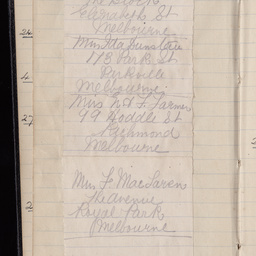 The Block
Elizabeth St
Melbourne
24
178 Park St
4
Parkville
Melbourne
Mrs N. F. Farmer
27
99 Hoddle St
Richmond
Melbourne
Mrs F. MacLaren
The Avenue
2
Royal Park
Melbourne